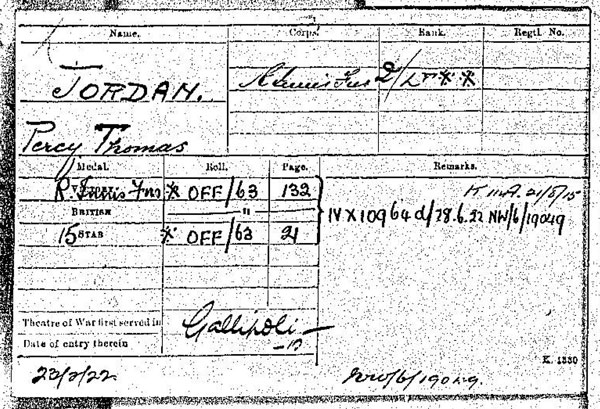 Name. Corps. Rank. Regtl. No.
JORDAN. Innis Fus 2/Lt **
Percy Thomas
Medal. Roll. Page. Remarks.
R. Innis Fus * OFF/63 132 K in A. 21/8/15
BRITISH —"— IV X 10964 d/28.6.22 NW/6/19049
15 STAR * OFF/63 21
Theatre of War first served in Gallipoli —
Date of entry therein —15
K. 1380
23/2/22 NW/6/19049.